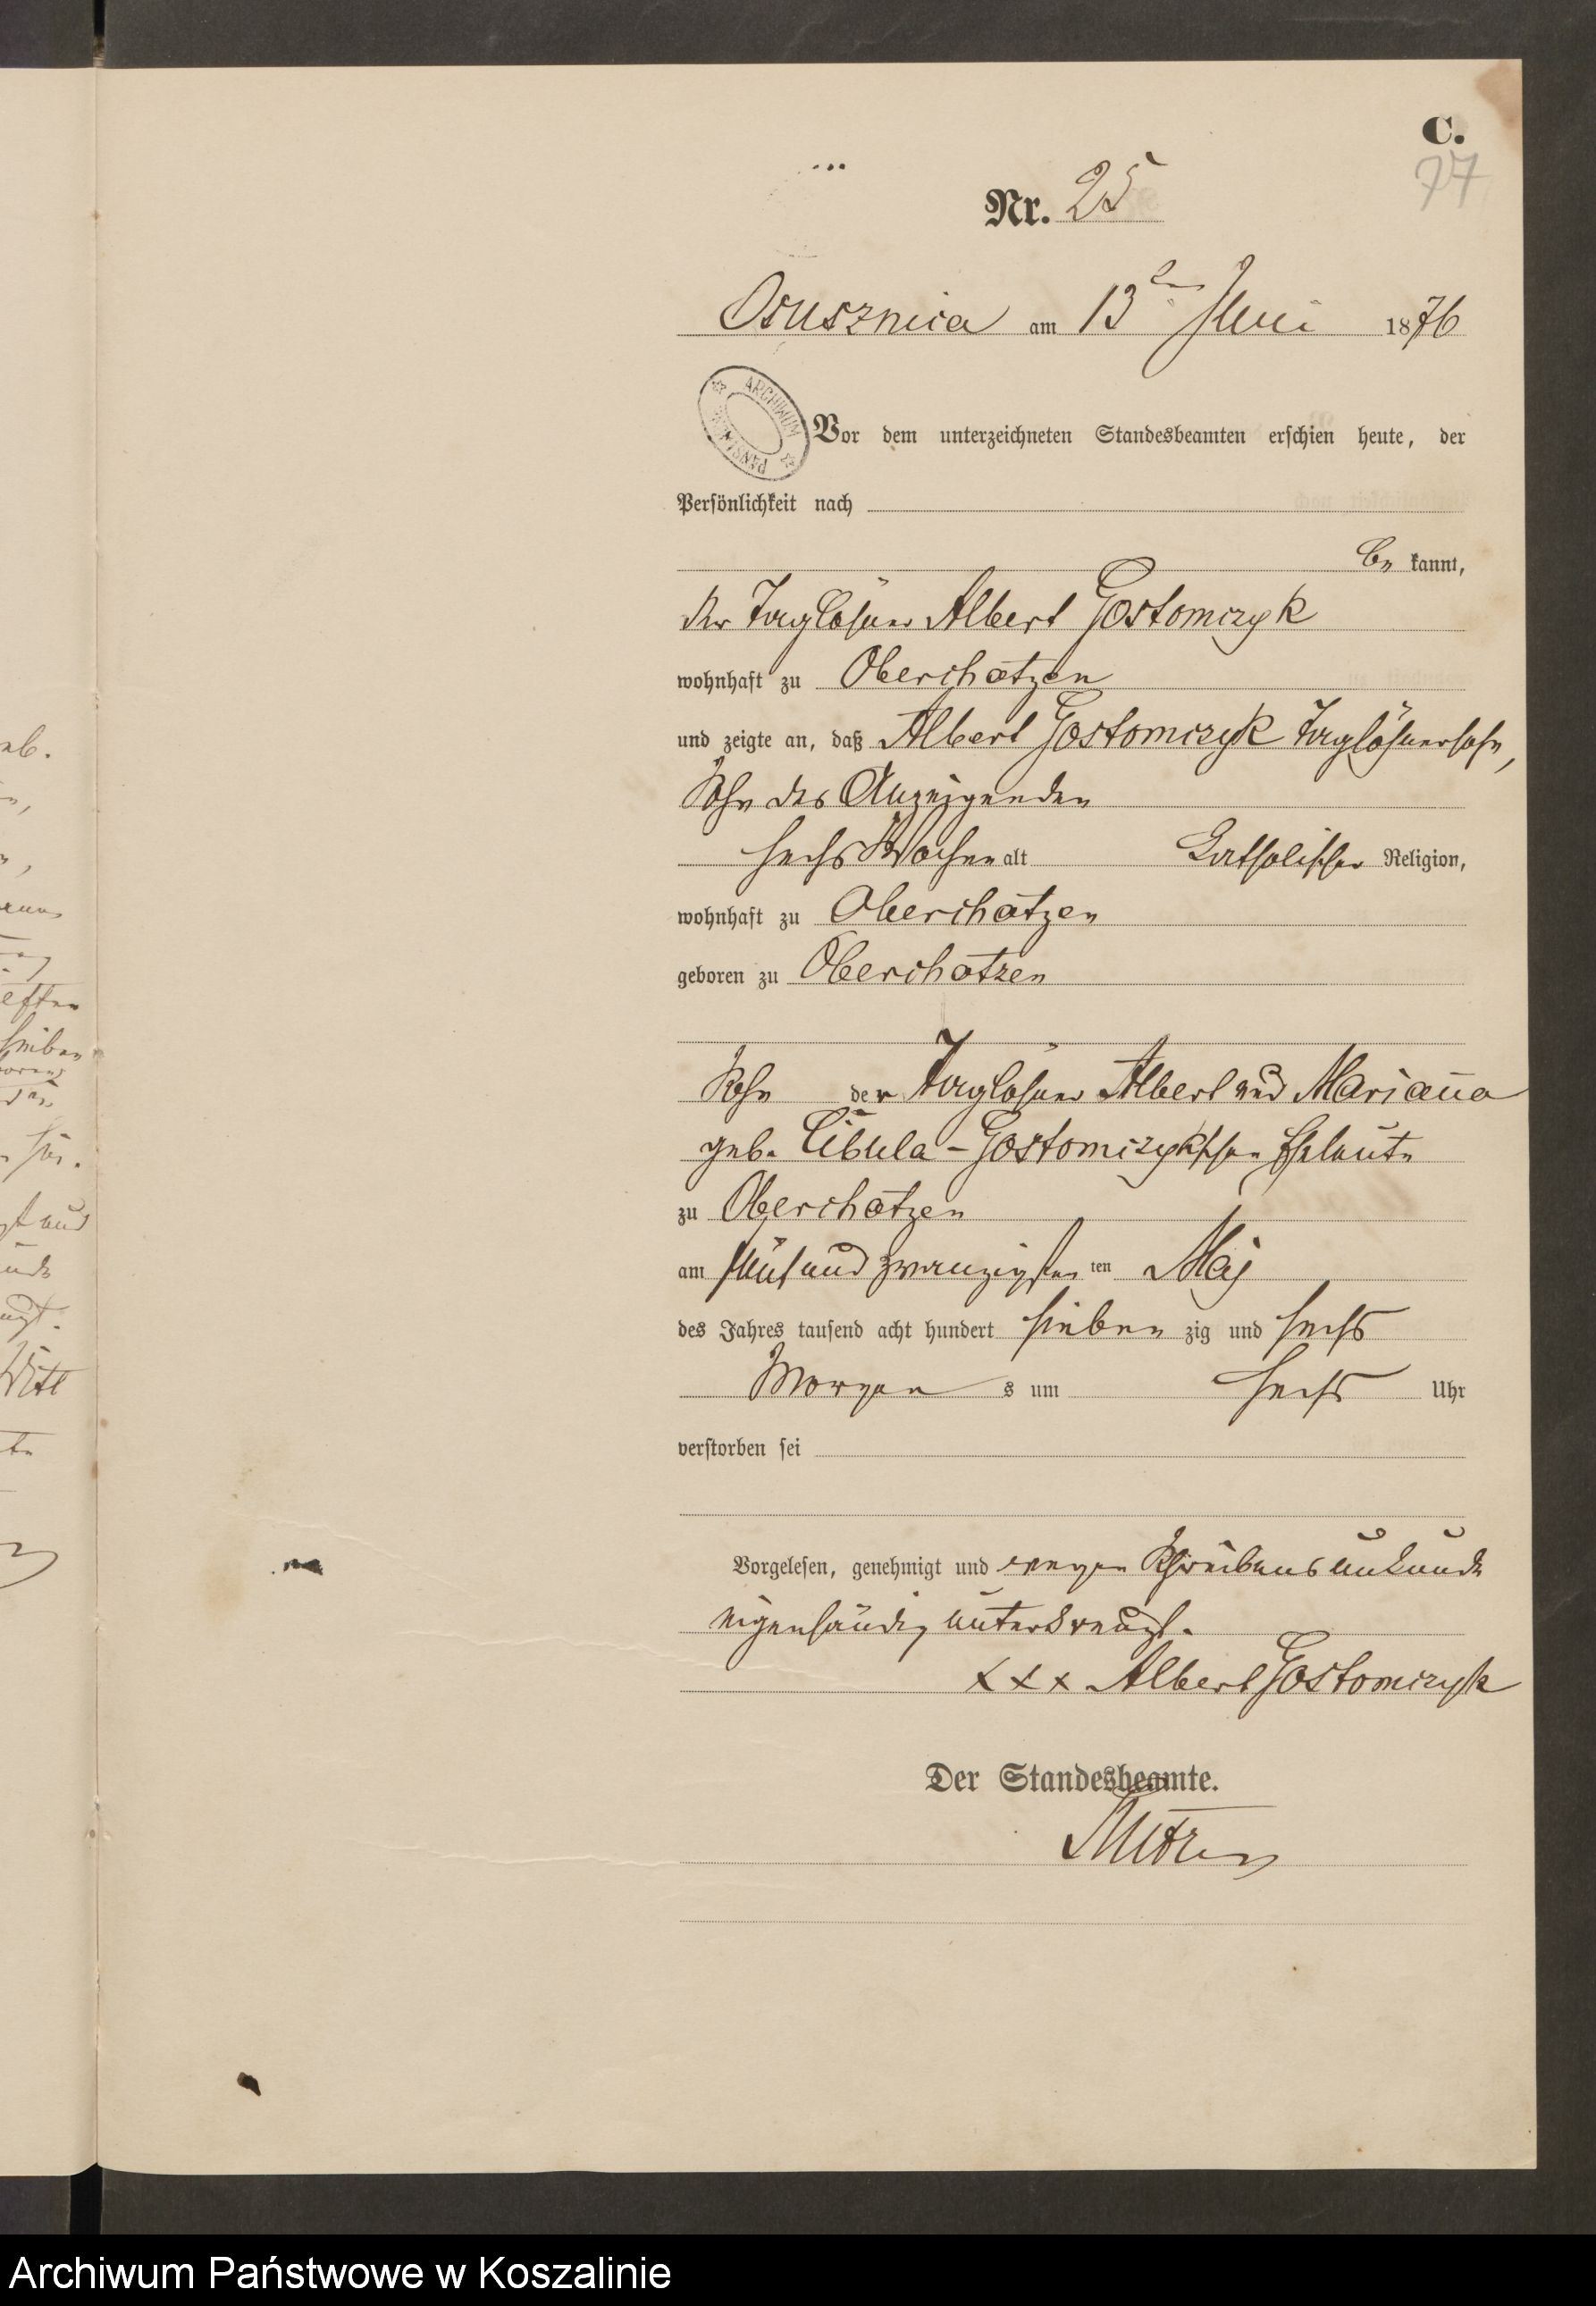 C.
77
Nr. 25
Osusznica am 13ten Juni 1876
ARCHIWUM PAŃSTWOWE
Vor dem unterzeichneten Standesbeamten erschien heute, der
Persönlichkeit nach
be kannt,
der Taglöhner Albert Gostomczyk
wohnhaft zu Oberchatzen
und zeigte an, daß Albert Gostomczyk Taglöhnersohn,
Sohn des Anzeigenden
sechs Wochen alt Katholischer Religion,
wohnhaft zu Oberchatzen
geboren zu Oberchatzen
Sohn der Taglöhner Albert und Marianna
geb. Cibula-Gostomczykschen Eheleute
zu Oberchatzen
am fünf und zwanzigsten ten Maj
des Jahres tausend acht hundert sieben zig und sechs
Morgen s um sechs Uhr
verstorben sei
Vorgelesen, genehmigt und wegen Schreibensunkunde
eigenhändig unterkreuzt.
xxx Albert Gostomczyk
Der Standesbeamte.
Archiwum Państwowe w Koszalinie